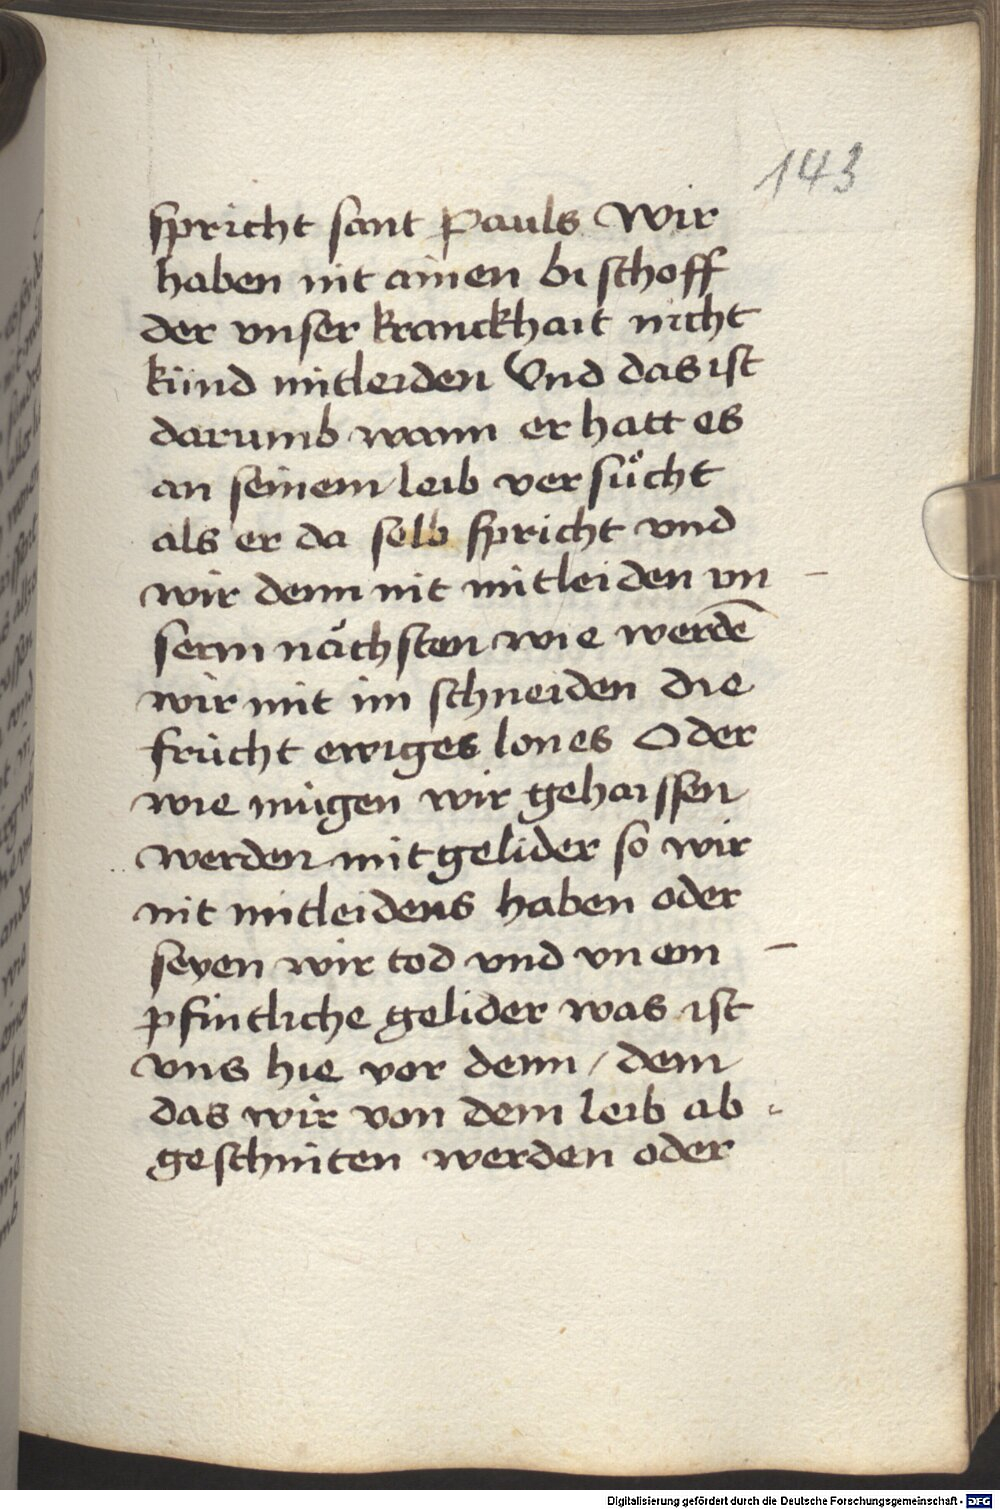 143
spricht sant Pauls Wir
haben nit ainen bischoff
der vnser kranckhait nicht
künd mitleiden Vnd das ist
darumb wann er hatt es
an seinem leib versůcht
als er da selb spricht vnd
wir denn nit mitleiden vn –
serm nächsten wie werdē
wir mit im schneiden die
frücht ewiges lones Oder
wie mügen wir gehaissen
werden mitgelider so wir
nit mitleidens haben oder
seyen wir tod vnd vn em –
pfintliche gelider was ist
vns hie vor denn / dem
das wir von dem leib ab -
geschniten werden oder
Digitalisierung gefördert durch die Deutsche Forschungsgemeinschaft - DFG